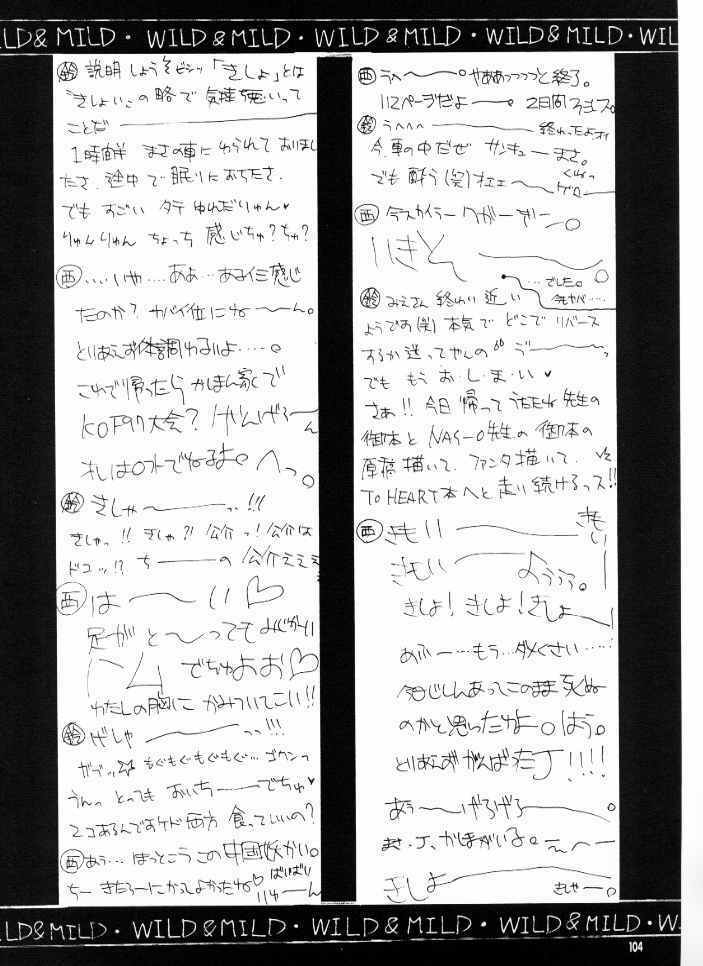 LD & MILD・WILD & MILD・WILD & MILD・WILD & MILD・WIL
鈴 説明しようぞビシッ「きしょ」とは
"きしょいこの略で気持悪いって
ことだ
1時半 まさの車に ゆられて おりまし
たさ. 途中で眠りにおちたさ.
でも すごい タテ ゆれだりゅん♥
りゅんりゅん ちょっち 感じちゅ?ちゅ?
西 ‥‥いや‥‥ああ‥あるイミ感じ
たのか? ヤバイ位にねーーん。
とりあえず体調わるいよ‥‥。
これで帰ったら かほん家で
KOF97大会? げんげろーん
れは0外でねるよ。へっ。
鈴 きしゃーーっ.!!!
きしゃっ!! きしゃ?! 公介っ!公介は
ドコッ!? ちーーの 公介ええ
西 は〜〜い♡
足が と〜ってもみじかい
ハム でちゅよお♡
わたしの胸に かみついてこい!!
鈴 げしゃーーっっ!!!
ガブッ もぐもぐもぐもぐ… ゴクンっ
うんっ とっても おいちーーでちゅ♥
2コあるんですケド 両方 食っていいの?
西 あう… ほっとこう この中国妖かい。
ちー きたろーにかってよかったね♡ ばいばい
西 うへ〜〜。 やああっつっつと終了。
112ページだよーー。2日間
鈴 うへへへ ーー終わったよオイ
今.車の中だぜ サンキューまさ。
でも 酔う(笑)オエェ〜〜
ゲロー
西 今スカイラークがーぎー。
いきとく
‥でした。
今ヤバ‥‥
鈴 みえさん 終わり 近い
ようです(笑) 本気で どこで リバース
するか迷ってやんのっ゛ ラ゛〜〜っ
でも もう お・し・ま・い♥
さあ!! 今日 帰って うたたね 先生の
御本と NAS-O先生の 御本の
原稿描いて. ファンタ描いて.
TO HEART本へと走り続けるっス!!
西 きもいーー
きもい
きもいーー ようううう。
きしょ! きしょ! きしょーー
あふー…もう‥ダメくさい‥‥
今日じしんあってこのまま 死ぬ
のかと思ったわよ。はう。
とりあえず がんばっ丁!!!!
あう〜〜げろげろーー。
きしょーー
きしゃー。
LD & MILD・WILD & MILD・WILD & MILD・WILD & MILD・W
104